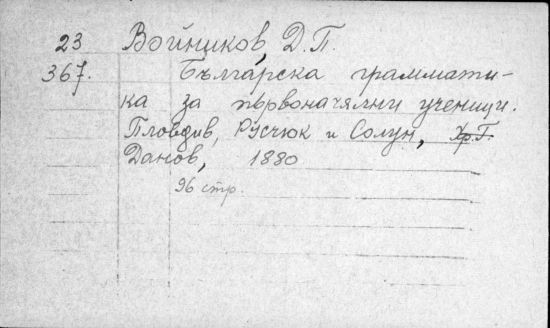 23 Войников, Д. П.
367. Българска граммати-
ка за първоначялни ученици.
Пловдив, Русчюк и Солун, Хр. Г.
Данов, 1880
96 стр.